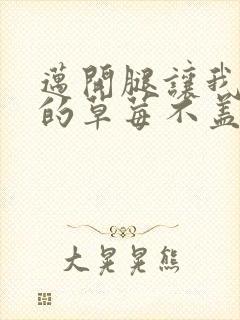 邁開腿讓我
的草莓不盖
大晃晃熊